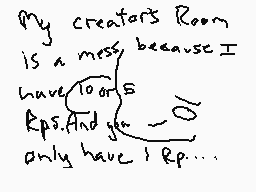 My creator's Room
is a mess, because I
have 10 or 5
Rps. And you
only have 1 Rp....